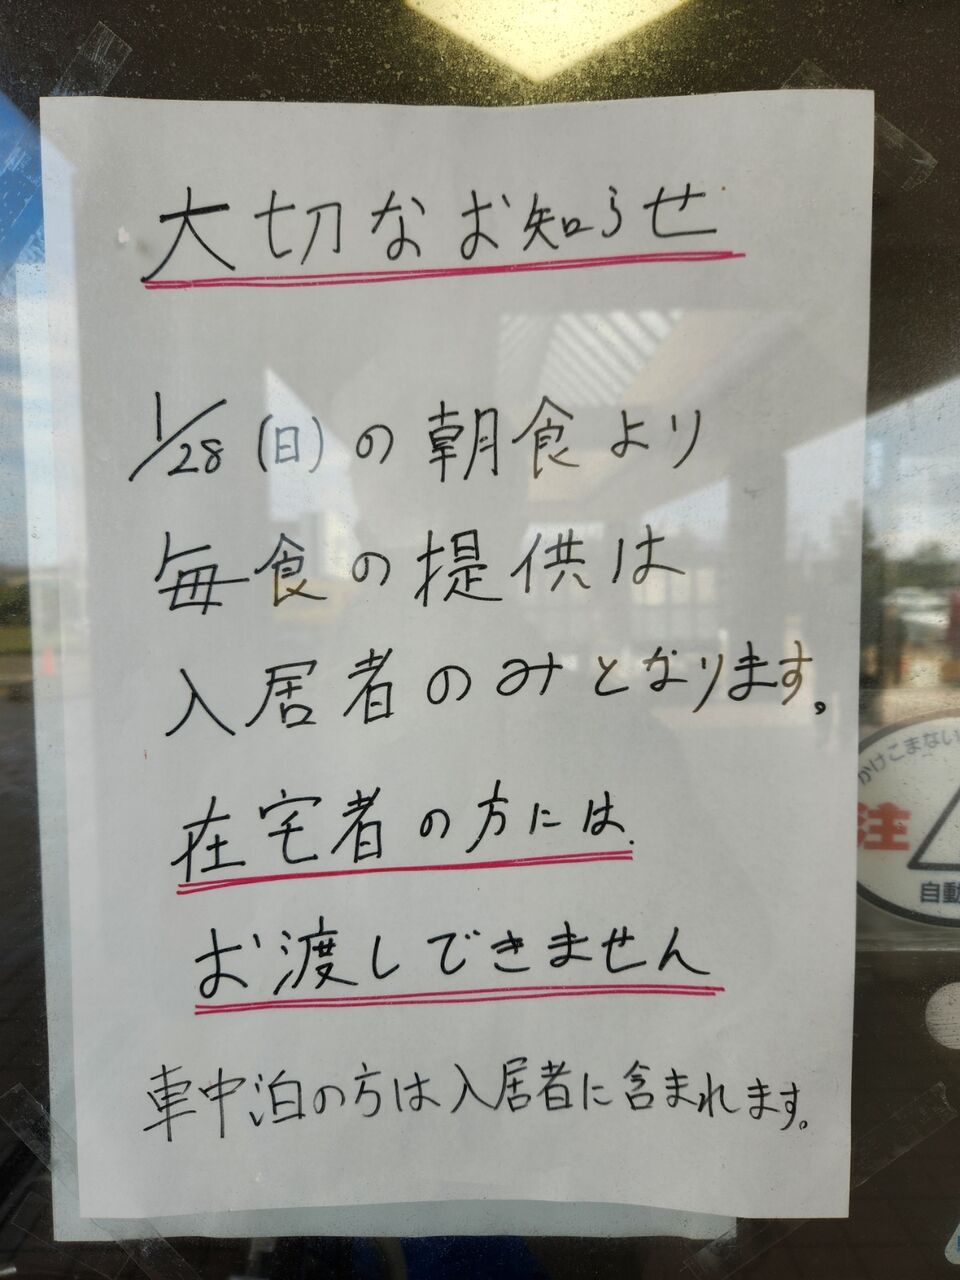 大切なお知らせ
1/28(日)の朝食より
毎食の提供は
入居者のみとなります。
在宅者の方には
お渡しできません
車中泊の方は入居者に含まれます。
かけこまない
注
自動